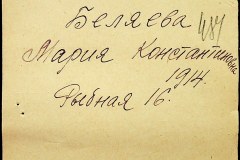 Беляева 487
Мария Константиновна
1914.
Рыбная 16.